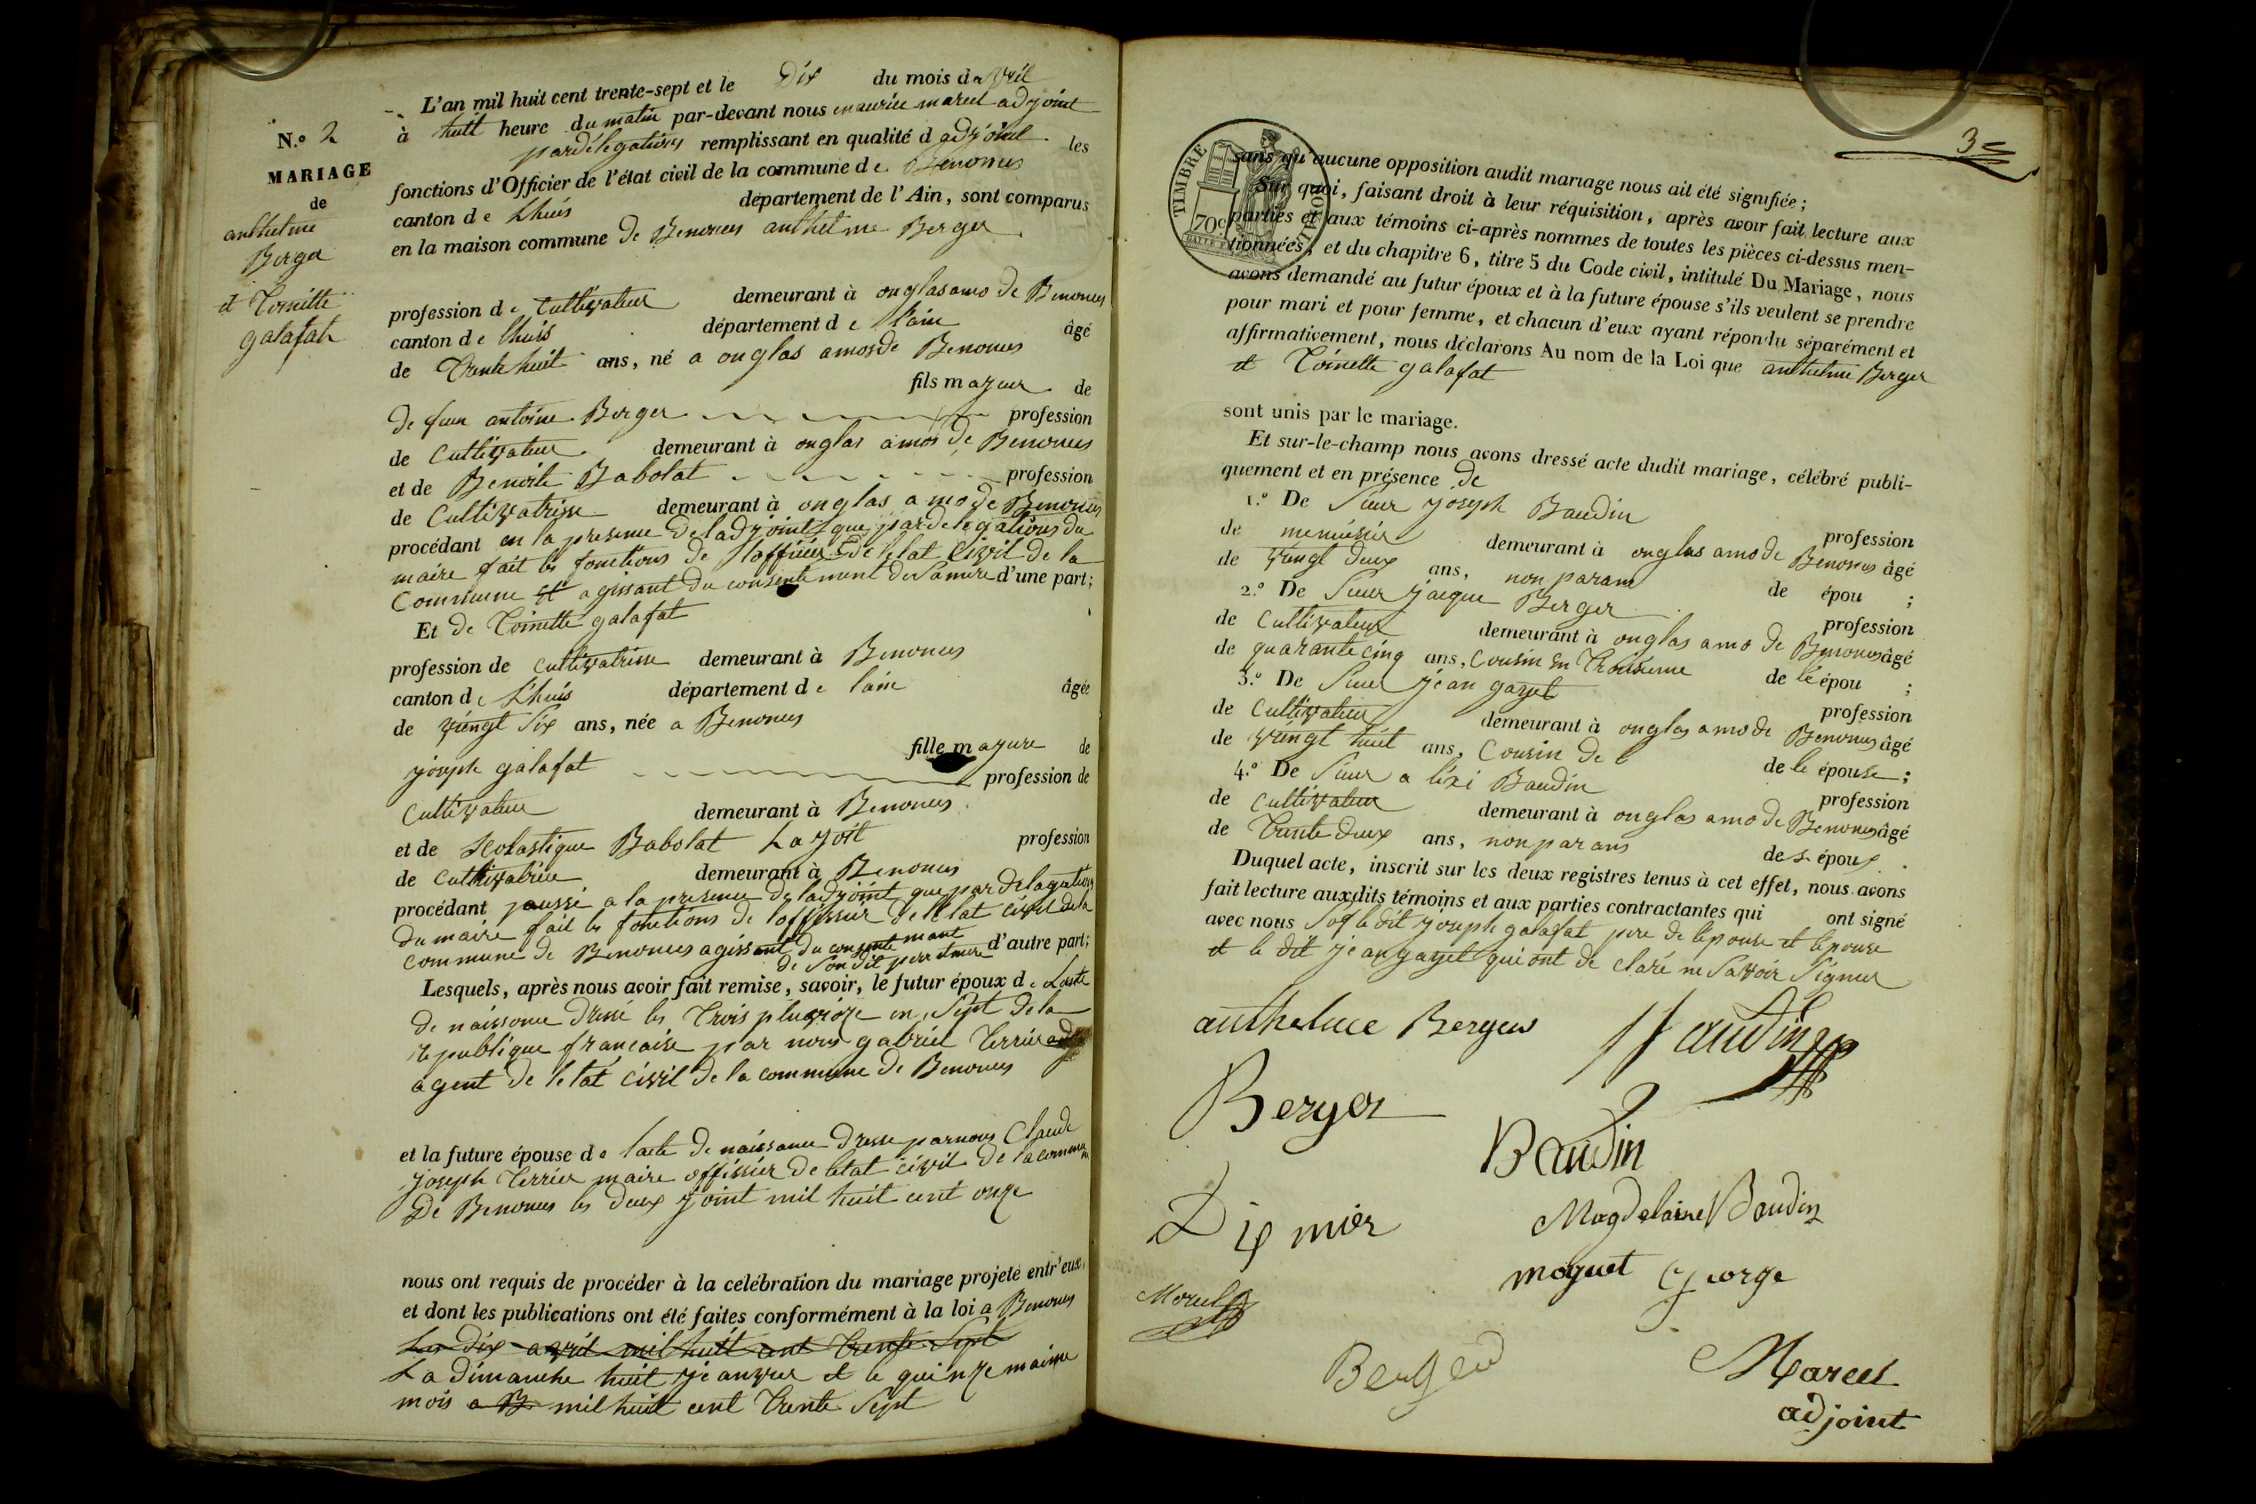 N.º 2
MARIAGE
de
anthelme
Berger
et Toinette
galafat
L'an mil huit cent trente-sept et le Dix du mois d avril
à huit heure du matin par-devant nous maurice marcel adjoint
par délégations remplissant en qualité d adjoint les
fonctions d'Officier de l'état civil de la commune de Benonces
canton de Lhuis département de l'Ain, sont comparus
en la maison commune de Benonces anthelme Berger
profession de Cultivateur demeurant à onglas amo de Benonces
canton de lhuis département de l'ain âgé
de Trente huit ans, né a onglas amo de Benonces
fils mayeur de
de feu antoine Berger profession
de Cultivateur demeurant à onglas amo de Benonces
et de Benoite Babolat profession
de Cultivatrisse demeurant à onglas amo de Benonces
procédant en la presence de ladjoint que par delegations du
maire fait les fonctions de l'officier de l'etat Civil de la
Commune et agissant du consentement de Sa mere d'une part;
Et de Toinette galafat
profession de Cultivatrisse demeurant à Benonces
canton de Lhuis département de lain âgée
de vingt Six ans, née a Benonces
fille mayure de
joseph galafat profession de
Cultivateur demeurant à Benonces
et de Scolastique Babolat Layoit profession
de Cultivatrice demeurant à Benonces
procédant aussi a la presence de ladjoint que par delagations
du maire fait les fonctions de l'offissier de l'etat civil de la
commune de Benonces agissant du consentemant
de Son dit pere et mere d'autre part;
Lesquels, après nous avoir fait remise, savoir, le futur époux de Lacte
de naissance dressé les Trois pluvioze en Sept de la
republique francaise par nous gabriel Terrier
agent de letat civil de la commune de Benonces
et la future épouse de lacte de naissance dresse par nous Claude
joseph Terrier maire offissier de letat civil de la commune
de Benonces les deux joint mil huit cent onze
nous ont requis de procéder à la célébration du mariage projeté entr'eux,
et dont les publications ont été faites conformément à la loi a Benonces
La dix avril mil huit cent trente Sept
La dimanche huit jeanvier et le quinze maime
mois a B mil huit cent Trente Sept
3
TIMBRE ROYAL
70c
sans qu'aucune opposition audit mariage nous ait été signifiée;
Sur quoi, faisant droit à leur réquisition, après avoir fait lecture aux
parties et aux témoins ci-après nommes de toutes les pièces ci-dessus men-
tionnées, et du chapitre 6, titre 5 du Code civil, intitulé Du Mariage, nous
avons demandé au futur époux et à la future épouse s'ils veulent se prendre
pour mari et pour femme, et chacun d'eux ayant répondu séparément et
affirmativement, nous déclarons Au nom de la Loi que anthelme Berger
et Toinette galafat
sont unis par le mariage.
Et sur-le-champ nous avons dressé acte dudit mariage, célébré publi-
quement et en présence de
1.º De Sieur joseph Baudin profession
de menuisier demeurant à onglas amo de Benonces âgé
de vingt deux ans, non parans de épou ;
2.º De Sieur jacque Berger profession
de Cultivateur demeurant à onglas amo de Benonces âgé
de quarante cinq ans, Cousin en Troisieme de lé épou ;
3.º De Sieur jean gayet profession
de Cultivateur demeurant à onglas amo de Benonces âgé
de vingt huit ans, Cousin de de le épouse;
4.º De Sieur a lixi Baudin profession
de Cultivateur demeurant à onglas amo de Benonces âgé
de Trente deux ans, non parans de s époux .
Duquel acte, inscrit sur les deux registres tenus à cet effet, nous avons
fait lecture auxdits témoins et aux parties contractantes qui ont signé
avec nous Sof le dit joseph galafat pere de lepouse et lepouse
et le dit jean gayet qui ont de claré ne Savoir Signer
anthelme Berger
J Baudin
Berger
Baudin
Dixmier
Magdelaine Baudin
moguet george
Morel
Berger
Marcel
adjoint